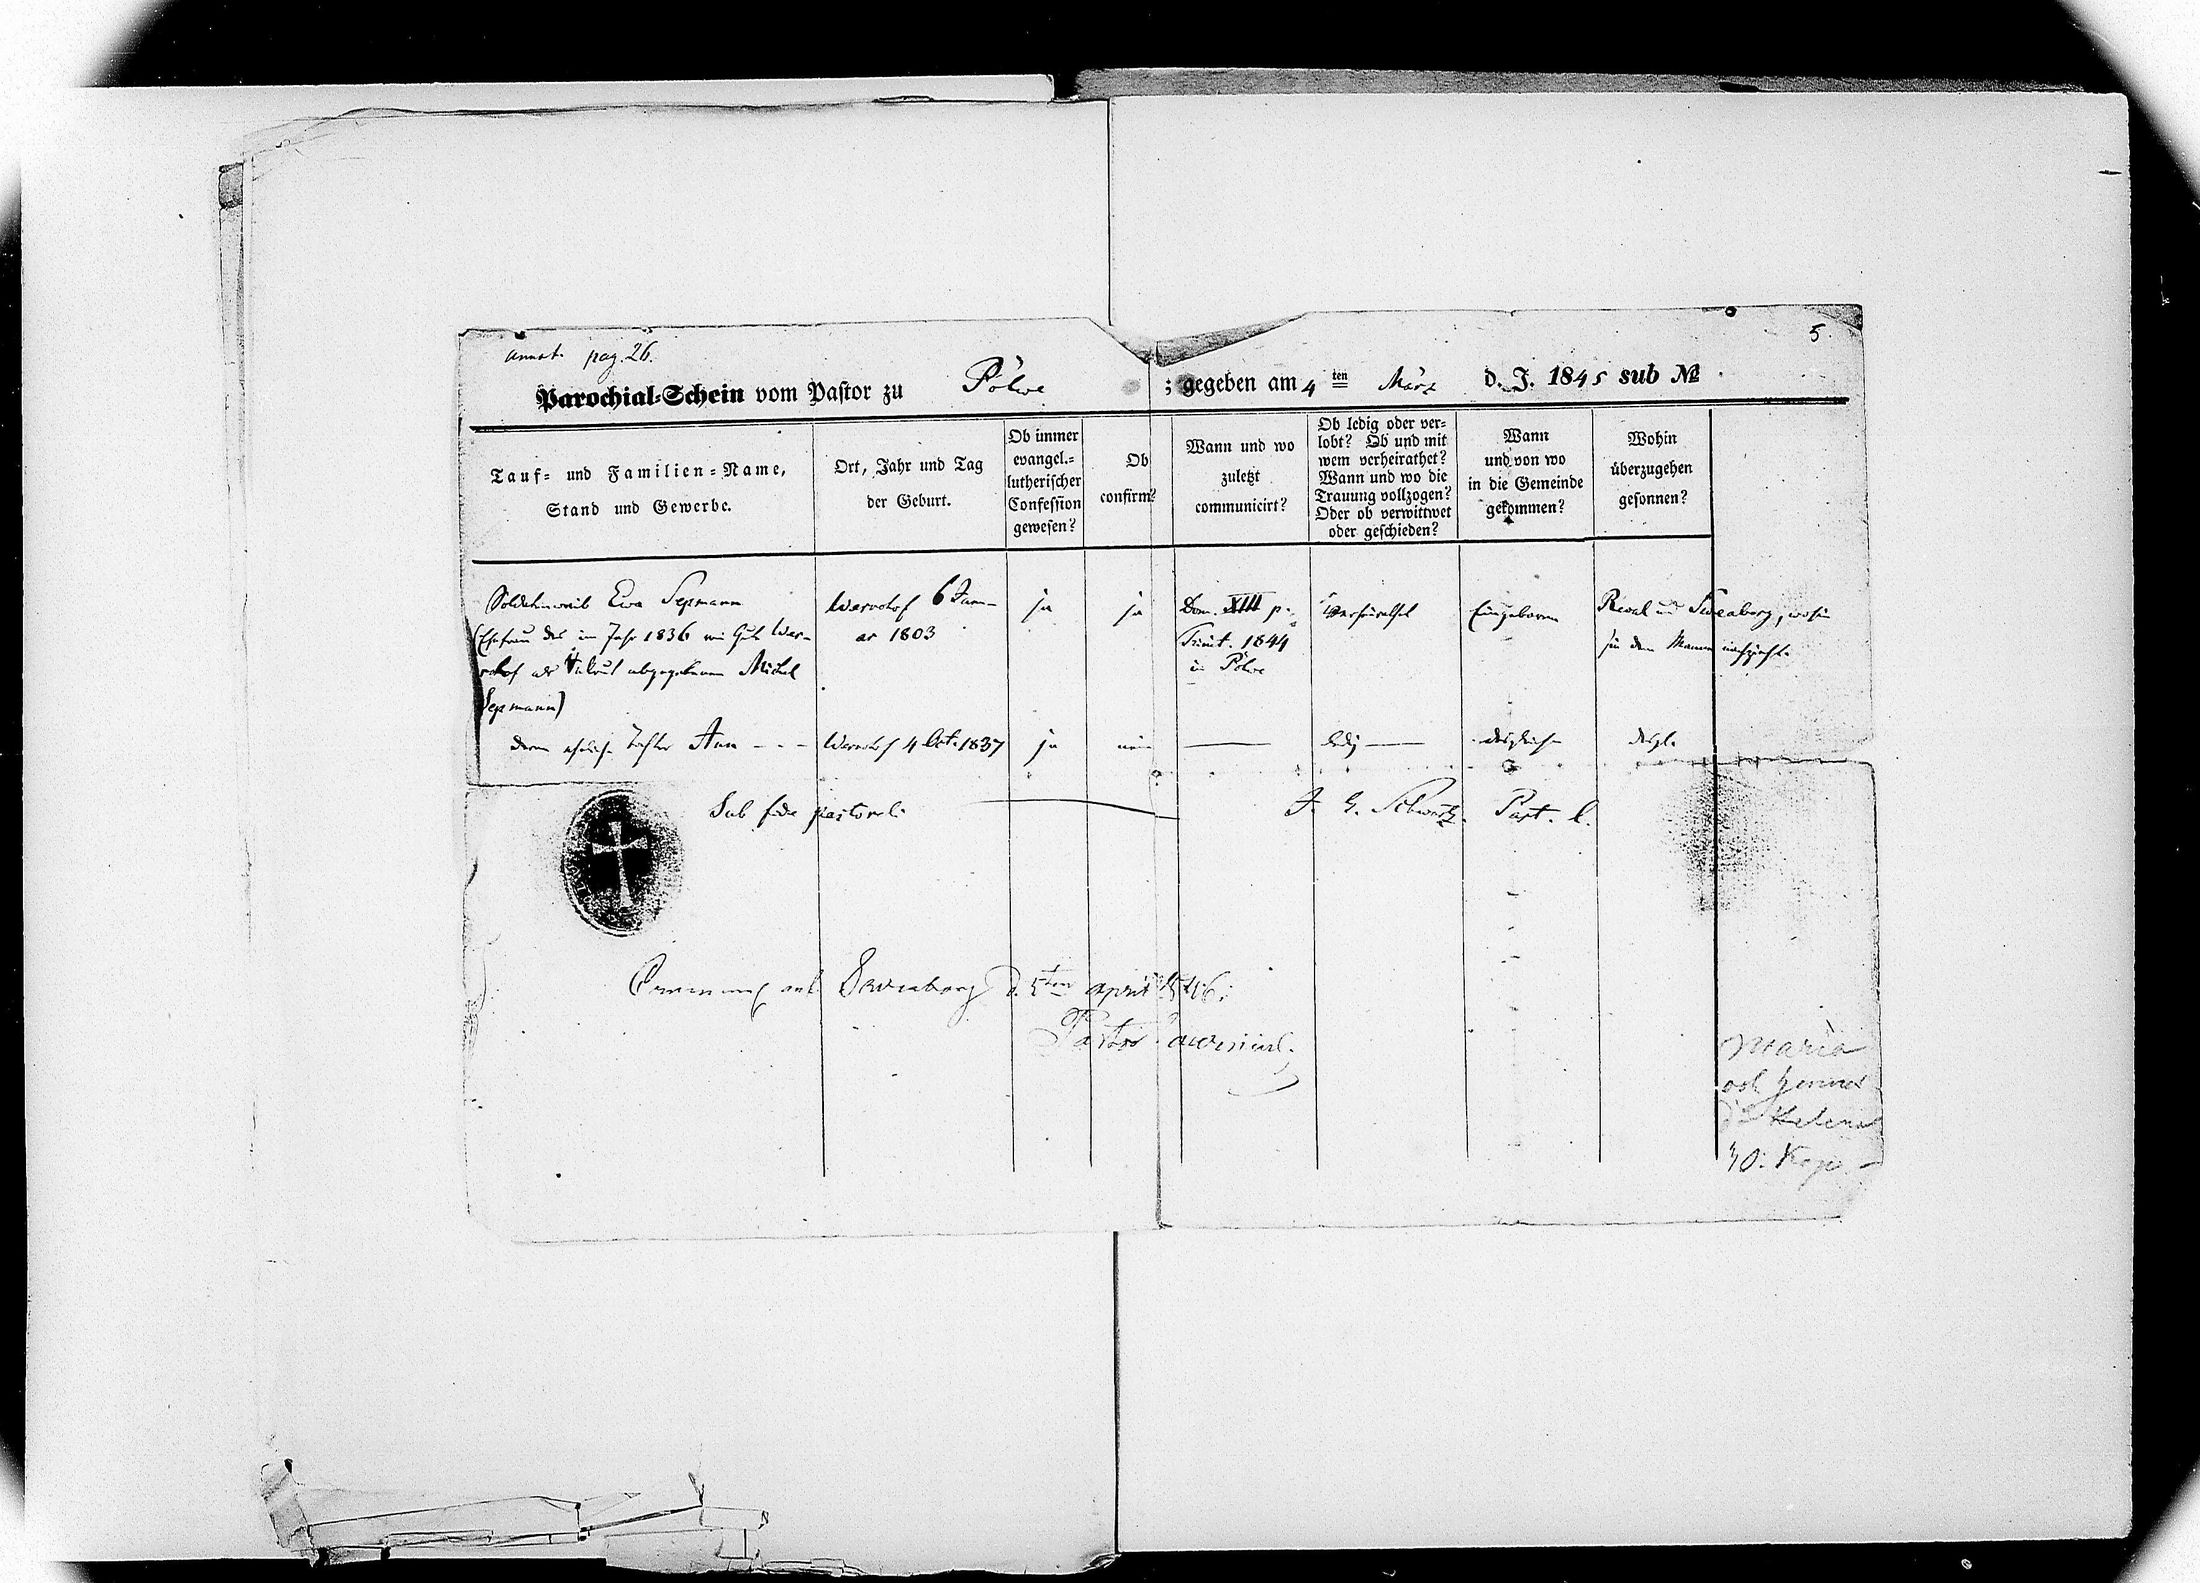 annot. pag. 26.
5.
Parochial-Schein vom Pastor zu Pölwe ; gegeben am 4 ten März d. J. 1845 sub №
Tauf- und Familien-Name,
Stand und Gewerbe.
Ort, Jahr und Tag
der Geburt.
Ob immer
evangel.-
lutherischer
Confession
gewesen?
Ob
confirm?
Wann und wo
zuletzt
communicirt?
Ob ledig oder ver-
lobt? Ob und mit
wem verheirathet?
Wann und wo die
Trauung vollzogen?
Oder ob verwittwet
oder geschieden?
Wann
und von wo
in die Gemeinde
gekommen?
Wohin
überzugehen
gesonnen?
Soldatenweib Ewa Sepmann
(Ehefrau des im Jahr 1836 vom Gute War-
rohof als Rekrut abgegebenen Michel
Sepmann)
Warrohof 6 Janu-
ar 1803
ja
ja
Dom. XIII p.
Trinit. 1844
in Pölwe
verheirathet
Eingeboren
Reval und Sweaborg, wohin
sie dem Manne nachzieht.
deren eheliche Tochter Ann - - -
Warrohof 4 Oct. 1837
ja
nein
ledig
desgleichen
desgl.
Sub fide pastorali
J. G. Schwartz. Past. l.
April 1846.
Pastor
Maria
och
Helena
Kop.